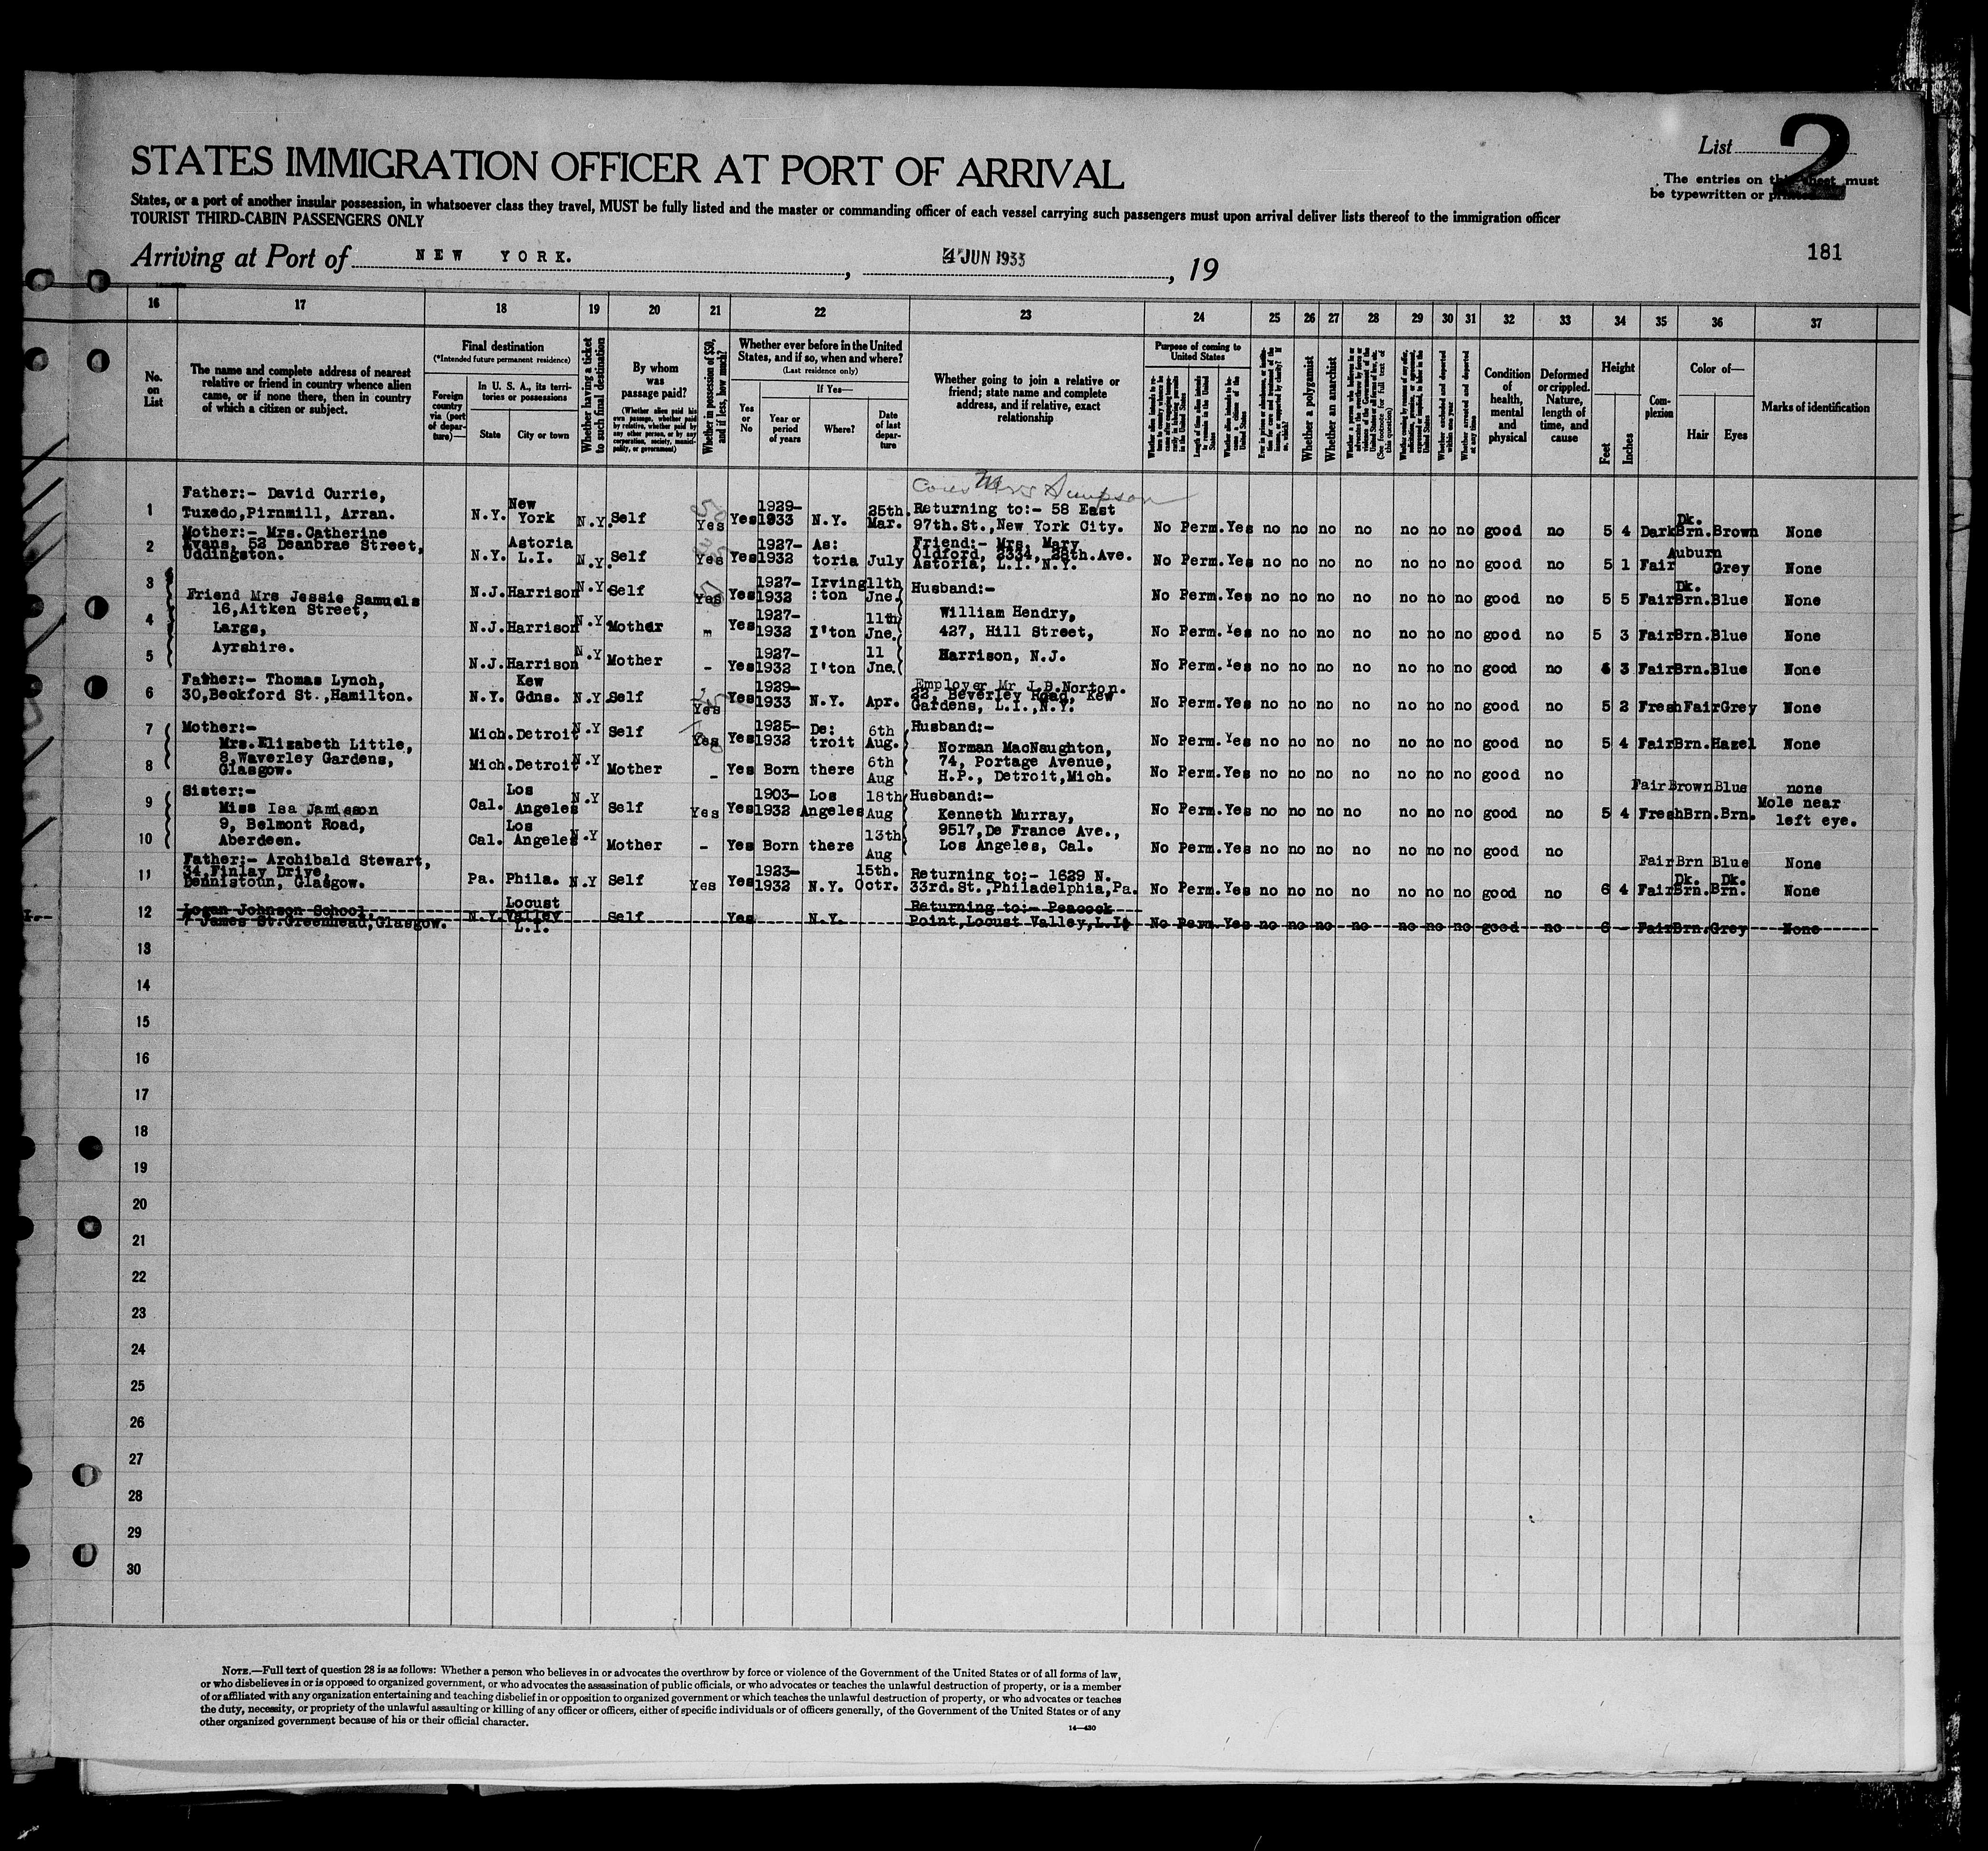 List 2
STATES IMMIGRATION OFFICER AT PORT OF ARRIVAL
The entries on this sheet must
be typewritten or printed.
States, or a port of another insular possession, in whatsoever class they travel, MUST be fully listed and the master or commanding officer of each vessel carrying such passengers must upon arrival deliver lists thereof to the immigration officer
TOURIST THIRD-CABIN PASSENGERS ONLY
Arriving at Port of NEW YORK. , 4 JUN 1933 , 19
181
16 17 18 19 20 21 22 23 24 25 26 27 28 29 30 31 32 33 34 35 36 37
No. on List
The name and complete address of nearest relative or friend in country whence alien came, or if none there, then in country of which a citizen or subject.
Final destination
(*Intended future permanent residence)
Foreign country via (port of departure)—
In U. S. A., its territories or possessions
State
City or town
Whether having a ticket to such final destination
By whom was passage paid?
(Whether alien paid his own passage, whether paid by relative, whether paid by any other person, or by any corporation, society, municipality, or government)
Whether in possession of $50, and if less, how much?
Whether ever before in the United States, and if so, when and where?
(Last residence only)
Yes or No
If Yes—
Year or period of years
Where?
Date of last departure
Whether going to join a relative or friend; state name and complete address, and if relative, exact relationship
Purpose of coming to United States
Length of time alien intends to remain in the United States
Whether alien intends to become a citizen of the United States
Whether a polygamist
Whether an anarchist
(See footnote for full text of this question)
Whether excluded and deported within one year
Whether arrested and deported at any time
Condition of health, mental and physical
Deformed or crippled. Nature, length of time, and cause
Height
Feet
Inches
Complexion
Color of—
Hair
Eyes
Marks of identification
Mrs Simpson
1 Father:- David Currie, Tuxedo,Pirnmill, Arran. N.Y. New York N.Y. Self Yes Yes 1929-1933 N.Y. 25th. Mar. Returning to:- 58 East 97th.St.,New York City. No Perm. Yes no no no no no no no good no 5 4 Dark Dk. Brn. Brown None
2 Mother:- Mrs.Catherine Evans, 52 Deanbrae Street, Uddingston. N.Y. Astoria L.I. N.Y. Self Yes Yes 1927-1932 As:toria July Friend:- Mrs. Mary Oldford, 2334, 28th.Ave. Astoria, L.I. N.Y. No Perm. Yes no no no no no no no good no 5 1 Fair Auburn Grey None
3 Friend Mrs Jessie Samuels N.J. Harrison N.Y Self Yes Yes 1927-1932 Irving:ton 11th Jne. Husband:- No Perm. Yes no no no no no no no good no 5 5 Fair Dk. Brn. Blue None
4 16,Aitken Street, Largs, N.J. Harrison N.Y Mother " Yes 1927-1932 I'ton 11th Jne. William Hendry, 427, Hill Street, No Perm. Yes no no no no no no no good no 5 3 Fair Brn. Blue None
5 Ayrshire. N.J. Harrison N.Y Mother - Yes 1927-1932 I'ton 11 Jne. Harrison, N.J. No Perm. Yes no no no no no no no good no 3 Fair Brn. Blue None
6 Father:- Thomas Lynch, 30,Beckford St.,Hamilton. N.Y. Kew Gdns. N.Y. Self Yes Yes 1929-1933 N.Y. Apr. Employer Mr J.B.Norton. 22, Beverley Road, Kew Gardens, L.I.,N.Y. No Perm. Yes no no no no no no no good no 5 2 Fresh Fair Grey None
7 Mother:- Mrs.Elizabeth Little, Mich. Detroit N.Y Self Yes Yes 1925-1932 De:troit 6th Aug. Husband:- Norman MacNaughton, No Perm. Yes no no no no no no no good no 5 4 Fair Brn. Hazel None
8 8,Waverley Gardens, Glasgow. Mich. Detroit N.Y Mother - Yes Born there 6th Aug 74, Portage Avenue, H.P., Detroit,Mich. No Perm. Yes no no no no no no no good no Fair Brown Blue none
9 Sister:- Miss Isa Jamieson Cal. Los Angeles N.Y Self Yes Yes 1903-1932 Los Angeles 18th Aug Husband:- Kenneth Murray, No Perm. Yes no no no no no no no good no 5 4 Fresh Brn. Brn. Mole near left eye.
10 9, Belmont Road, Aberdeen. Cal. Los Angeles N.Y Mother - Yes Born there 13th Aug 9517,De France Ave., Los Angeles, Cal. No Perm. Yes no no no no no no no good no Fair Brn Blue None
11 Father:- Archibald Stewart, 34,Finlay Drive, Dennistoun, Glasgow. Pa. Phila. N.Y Self Yes Yes 1923-1932 N.Y. 15th. Octr. Returning to:- 1629 N. 33rd.St.,Philadelphia,Pa. No Perm. Yes no no no no no no no good no 6 4 Fair Dk. Brn. Dk. Brn. None
12 Logan Johnson School, 7 James St.Greenhead,Glasgow. N.Y. Locust Valley L.I. Self Yes N.Y. Returning to:- Peacock Point,Locust Valley,L.I. No Perm. Yes no no no no no no no good no 6 - Fair Brn. Grey None
13
14
15
16
17
18
19
20
21
22
23
24
25
26
27
28
29
30
NOTE.—Full text of question 28 is as follows: Whether a person who believes in or advocates the overthrow by force or violence of the Government of the United States or of all forms of law,
or who disbelieves in or is opposed to organized government, or who advocates the assassination of public officials, or who advocates or teaches the unlawful destruction of property, or is a member
of or affiliated with any organization entertaining and teaching disbelief in or opposition to organized government or which teaches the unlawful destruction of property, or who advocates or teaches
the duty, necessity, or propriety of the unlawful assaulting or killing of any officer or officers, either of specific individuals or of officers generally, of the Government of the United States or of any
other organized government because of his or their official character.
14—430